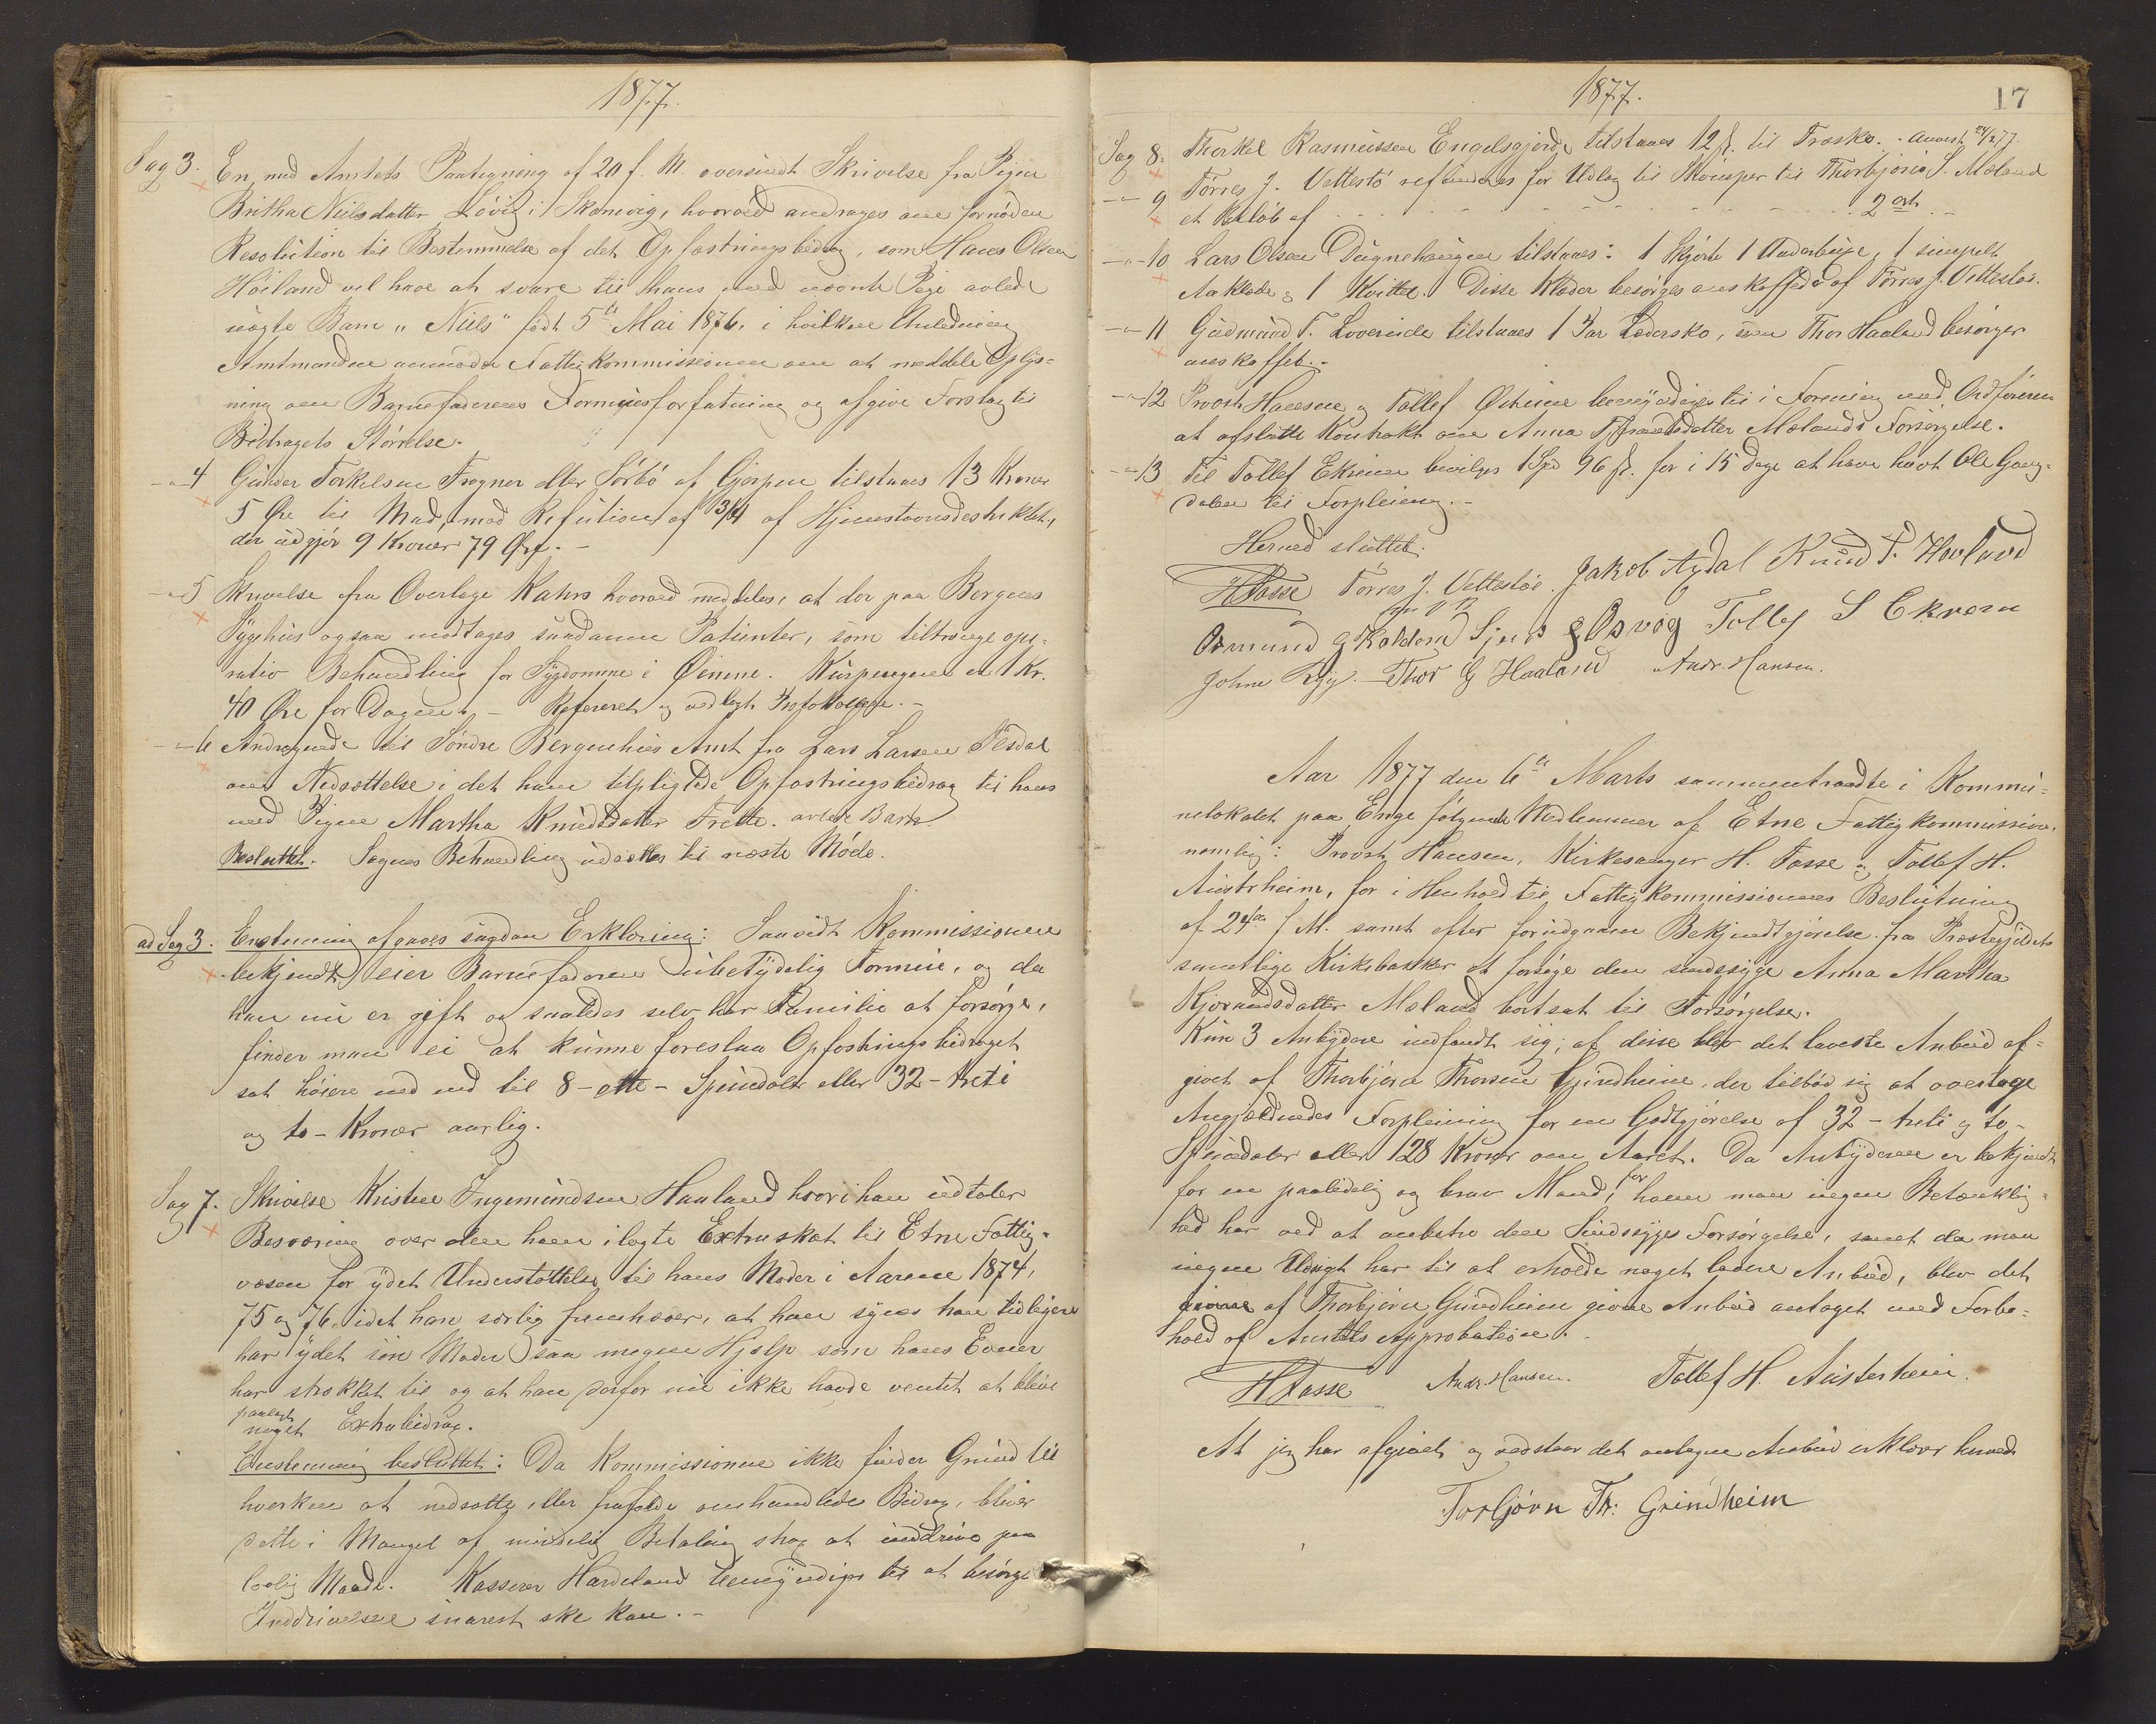 1877.
Sag 3. En med Amtets Paategning af 20 f. M. oversendt Skrivelse fra Pigen
Britha Nielsdatter Løvig i Skonevig, hvorved andrages om fornøden
Resolution til Bestemmelse af det Opfostringsbidrag, som Hans Olsen
Høiland vil have at svare til hans med nævnte Pige avlede
uægte Barn "Niels" født 5te Mai 1876. i hvilken Anledning
Amtmanden anmoder Fattigkommissionen om at meddele Oplys-
ning om Barnefaderens Formuesforfatning og afgive Forslag til
Bidragets Størrelse.
-"- 4 Gunder Torkelsen Fragner eller Sørbø af Gjerpen tilstaaes 13 Kroner
5 Øre til Mad, mod Refusion af 3/4 af Hjemstavnsdestriktet,
der udgjør 9 Kroner 79 Øre. -
-"- 5 Skrivelse fra Overlæge Kahrs hvorved meddeles, at der paa Bergens
Sygehus ogsaa modtages saadanne Patienter, som tiltrænge ope-
rativ Behandling for Sygdomme i Øinene. Kurpengene er 1 Kr.
40 Øre for Dagen. - Refereret og vedlagt Protokollen. -
-"- 6 Andragende til Søndre Bergenhus Amt fra Lars Larsen Tesdal
om Nedsættelse i det ham tilpligtede Opfostringsbidrag til hans
med Pigen Martha Knudsdatter Frette avlede Barn.
Besluttet. Sagens Behandling udsættes til næste Møde.
ad Sag 3. Enstemmig afgaves saadan Erklæring: Saavidt Kommissionen
bekjendt, eier Barnefaderen ubetydelig Formue, og da
han nu er gift og saaledes selv har Familie at forsørge,
finder man ei at kunne foreslaa Opfostringsbidraget
sat høiere ned end til 8 - otte - Speciedaler eller 32 - treti
og to - Kroner aarlig.
Sag 7. Skrivelse Kristen Ingemundsen Haaland hvori han udtaler
Besværing over den ham ilagte Extraskat til Etne Fattig-
væsen for ydet Understøttelse til hans Moder i Aarene 1874,
75 og 76, idet han særlig fremhæver, at han synes han tidligere
har ydet sin Moder saa megen Hjælp som hans Evner
har strækket til og at han derfor nu ikke havde ventet at blive
paalagt
noget Extrabidrag.
Enstemmig besluttet: Da Kommissionen ikke finder Grund til
hverken at nedsætte eller frafalde omhandlede Bidrag, bliver
dette i Mangel af mindelig Betaling strax at inddrive paa
lovlig Maade. Kasserer Hardeland bemyndiges til at besørge
Inddrivelsen snarest ske kan. -
1877.
17
Sag 8. Thorkel Rasmussen Engelsgjerde tilstaaes 12 ß. til Træsko. - Anvist 24/2 77.
-"- 9 Tørres J. Vettestø refunderes for Udlæg til til Thorbjørn S. Mæland
et Beløb af - - - - - - - - - - - - - - 2 ort. -
-"- 10 Lars Olsen tilstaaes: 1 Skjorte 1 Underbuxe, 1 simpelt
Aaklæde & 1 Kvittel. Disse Klæder besørges anskaffede af Tørres J. Vettestø.
-"- 11 Gudmund T. tilstaaes 1 Par Lædersko, som Thor Haaland besørger
anskaffet. -
-"- 12 Provst Hansen og Tollef Ekrene bemyndiges til i Forening med Ordføreren
at afslutte Kontrakt om Anna datter Mælands Forsørgelse.
-"- 13 Til Tollef Ekrene bevilges 1 Spd 96 ß. for i 15 Dage at have havt Ole
dalen til Forpleining. -
Herved sluttet.
HTasse Tørres J. Vettestøe. Jakob Agdal Knud T. Hovland
Osmund G Kaldem Sjur G Osvog Tollef S Ekrem
Johne Ryg. Thor G Haaland Andr. Hansen.
Aar 1877 den 6te Marts sammentraadte i Kommu-
nelokalet paa Enge følgende Medlemmer af Etne Fattigkommission,
nemlig: Provst Hansen, Kirkesanger H. Tasse og Tollef H.
Austrheim, for i Henhold til Fattigkommissionens Beslutning
af f. M. samt efter forudgaaen Bekjendtgjørelse fra Præstegjeldets
samtlige Kirkebakker at forsøge den sindssyge Anna Martha
Kjørandsdatter Mæland bortsat til Forsørgelse.
Kun 3 Anbydere indfandt sig; af disse blev det laveste Anbud af-
givet af Thorbjørn Thorsen Grindheim, der tilbød sig at overtage
Angjældendes Forpleining for en Godtgjørelse af 32 - treti og to -
Speciedaler eller 128 Kroner om Aaret. Da Anbyderen er bekjendt
for en paalidelig og brav Mand, for hvem man ingen Betænklig-
hed har ved at anbetro den Sindssyges Forsørgelse, samt da man
ingen Udsigt har til at erholde noget lavere Anbud, blev det
givne af Thorbjørn Grindheim givne Anbud antaget med Forbe-
hold af Amtets Approbation. -
HTasse Andr. Hansen. Tollef H. Austerheim.
At jeg har afgivet og vedstaar det antagne Anbud erklærer herved
Torbjørn Th: Grindheim